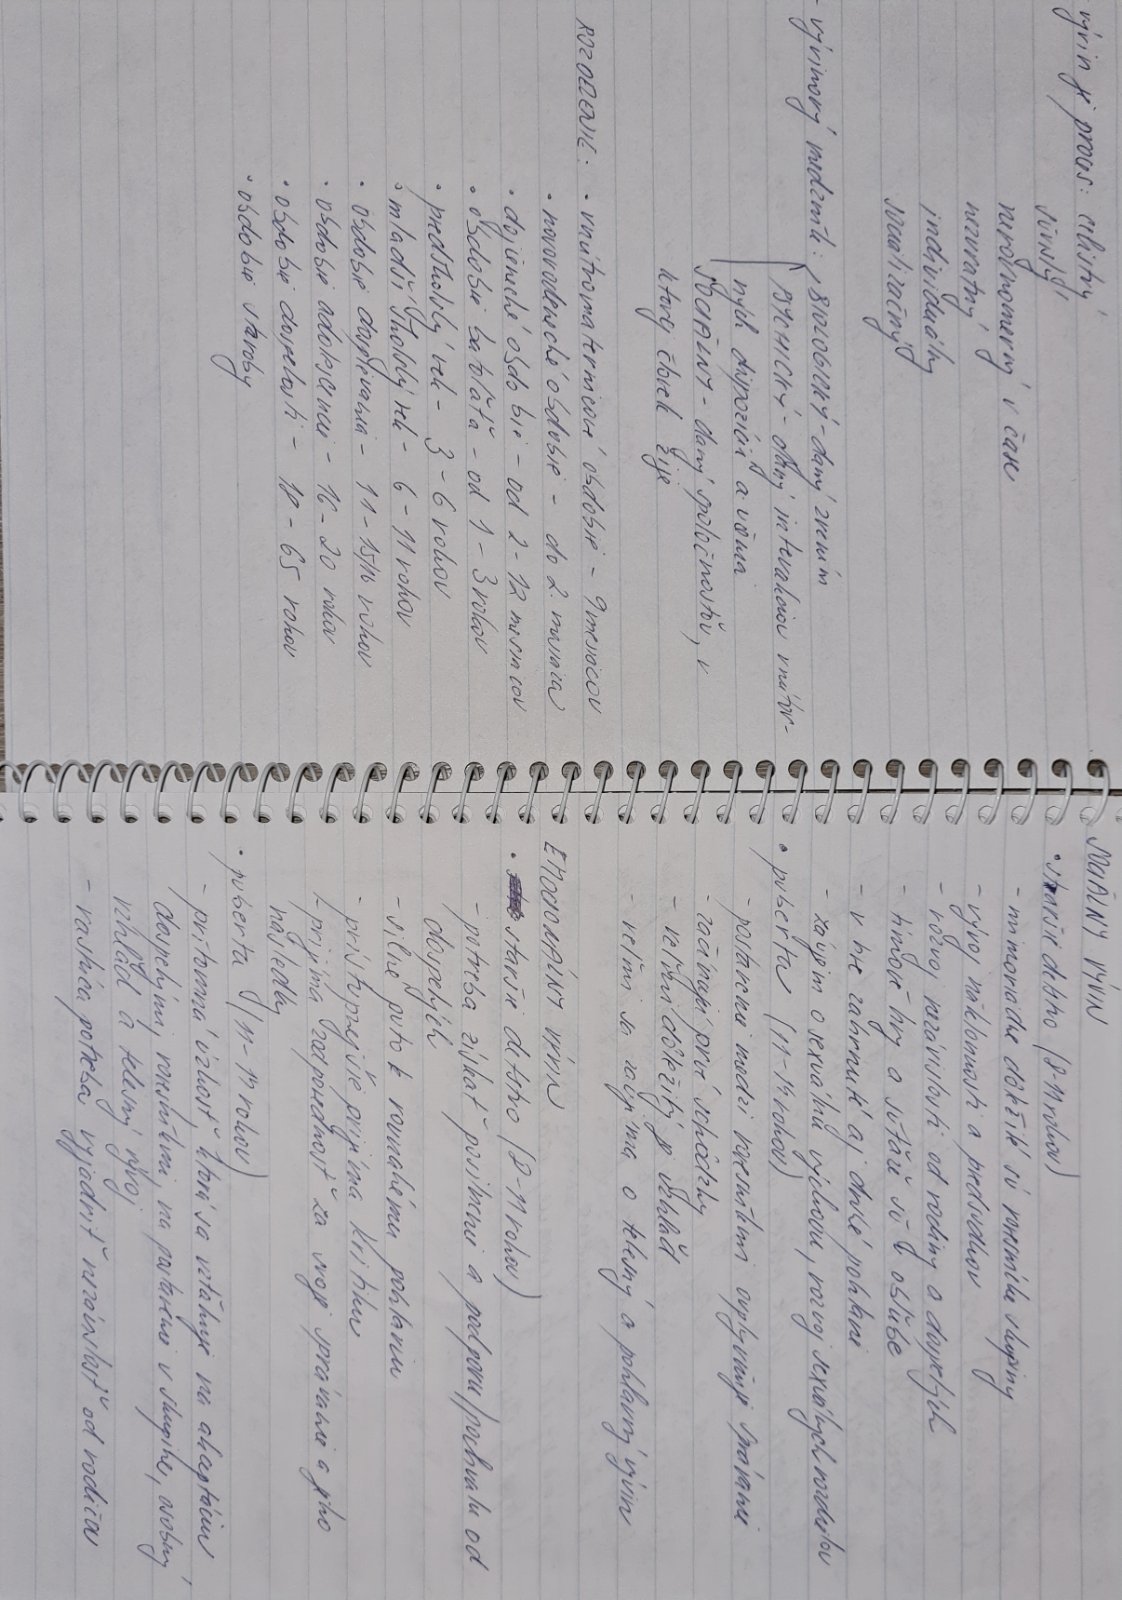 vývin je proces: celistvý
súvislý
nerovnomerný v čase
nezvratný
individuálny
socializačný
- vývinový medzník: BIOLOGICKÝ - daný zrením
PSYCHICKÝ - daný interakciou vnútor-
ných dispozícií a učenia
SOCIÁLNY - daný spoločnosťou, v
ktorej človek žije
ROZDELENIE: • vnútromaternicové obdobie - 9 mesiacov
• novorodenecké obdobie - do 2. mesiaca
• dojčenské obdobie - od 2 - 12 mesiacov
• obdobie batoľaťa - od 1 - 3 rokov
• predškolský vek - 3 - 6 rokov
• mladší školský vek - 6 - 11 rokov
• obdobie dospievania - 11 - 15/16 rokov
• obdobie adolescencie - 16 - 20 rokov
• obdobie dospelosti - 18 - 65 rokov
• obdobie staroby
SOCIÁLNY VÝVIN
• staršie detstvo (8-11 rokov)
- mimoriadne dôležité sú rovesnícke skupiny
- vývoj náklonností a predsudkov
- rozvoj nezávislosti od rodiny a dospelých
- tímové hry a súťaže sú v obľube
- v hre zahrnuté aj druhé pohlavie
- záujem o sexuálnu výchovu, rozvoj sexuálnych rozdielov
• puberta (11-14 rokov)
- postavenie medzi rovesníkmi ovplyvňuje správanie
- začínajú prvé schôdzky
- veľmi dôležitý je vzhľad
- veľmi sa zaujíma o telesný a pohlavný vývin
EMOCIONÁLNY VÝVIN
• staršie detstvo (8-11 rokov)
- potreba získať posilnenie a podporu/pochvalu od
dospelých
- silné puto k rovnakému pohlaviu
- prijíma kritiku
- prijíma zodpovednosť za svoje správanie a jeho
následky
• puberta (11-14 rokov)
- prítomná úzkosť ktorá sa vzťahuje na akceptáciu
dospelými, rovesníkmi, na postavenie v skupine, osobný
vzhľad a telesný vývoj
- rastúca potreba vyjadriť nezávislosť od rodičov